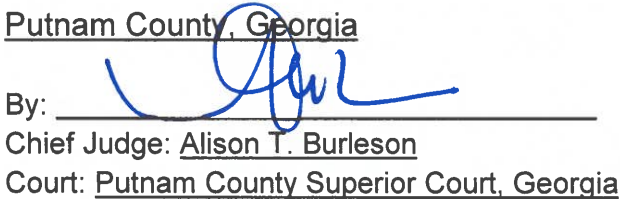 Putnam County, Georgia
By:
Chief Judge: Alison T. Burleson
Court: Putnam County Superior Court, Georgia